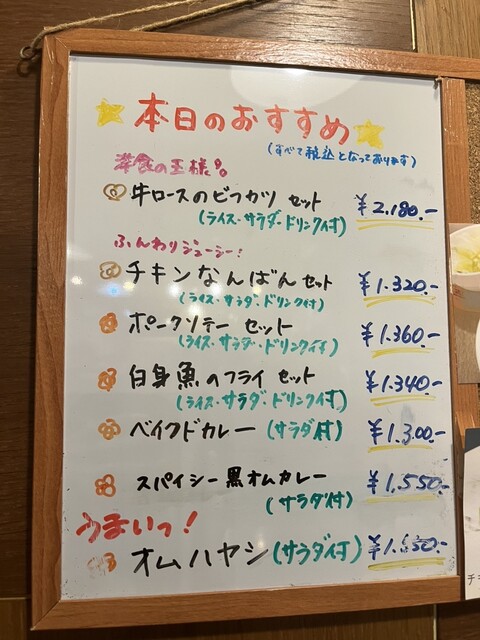 本日のおすすめ
(すべて税込となっております)
洋食の王様♪。
牛ロースのビフカツ セット ¥2.180.-
(ライス・サラダ・ドリンク付)
ふんわりジューシー!
チキンなんばんセット ¥1.320.-
(ライス・サラダ・ドリンク付)
ポークソテー セット ¥1.360.-
(ライス・サラダ・ドリンク付)
白身魚のフライ セット ¥1.340.-
(ライス・サラダ・ドリンク付)
ベイクドカレー (サラダ付) ¥1.300.-
スパイシー黒オムカレー ¥1.550.-
(サラダ付)
うまいっ!
オムハヤシ(サラダ付)
チ